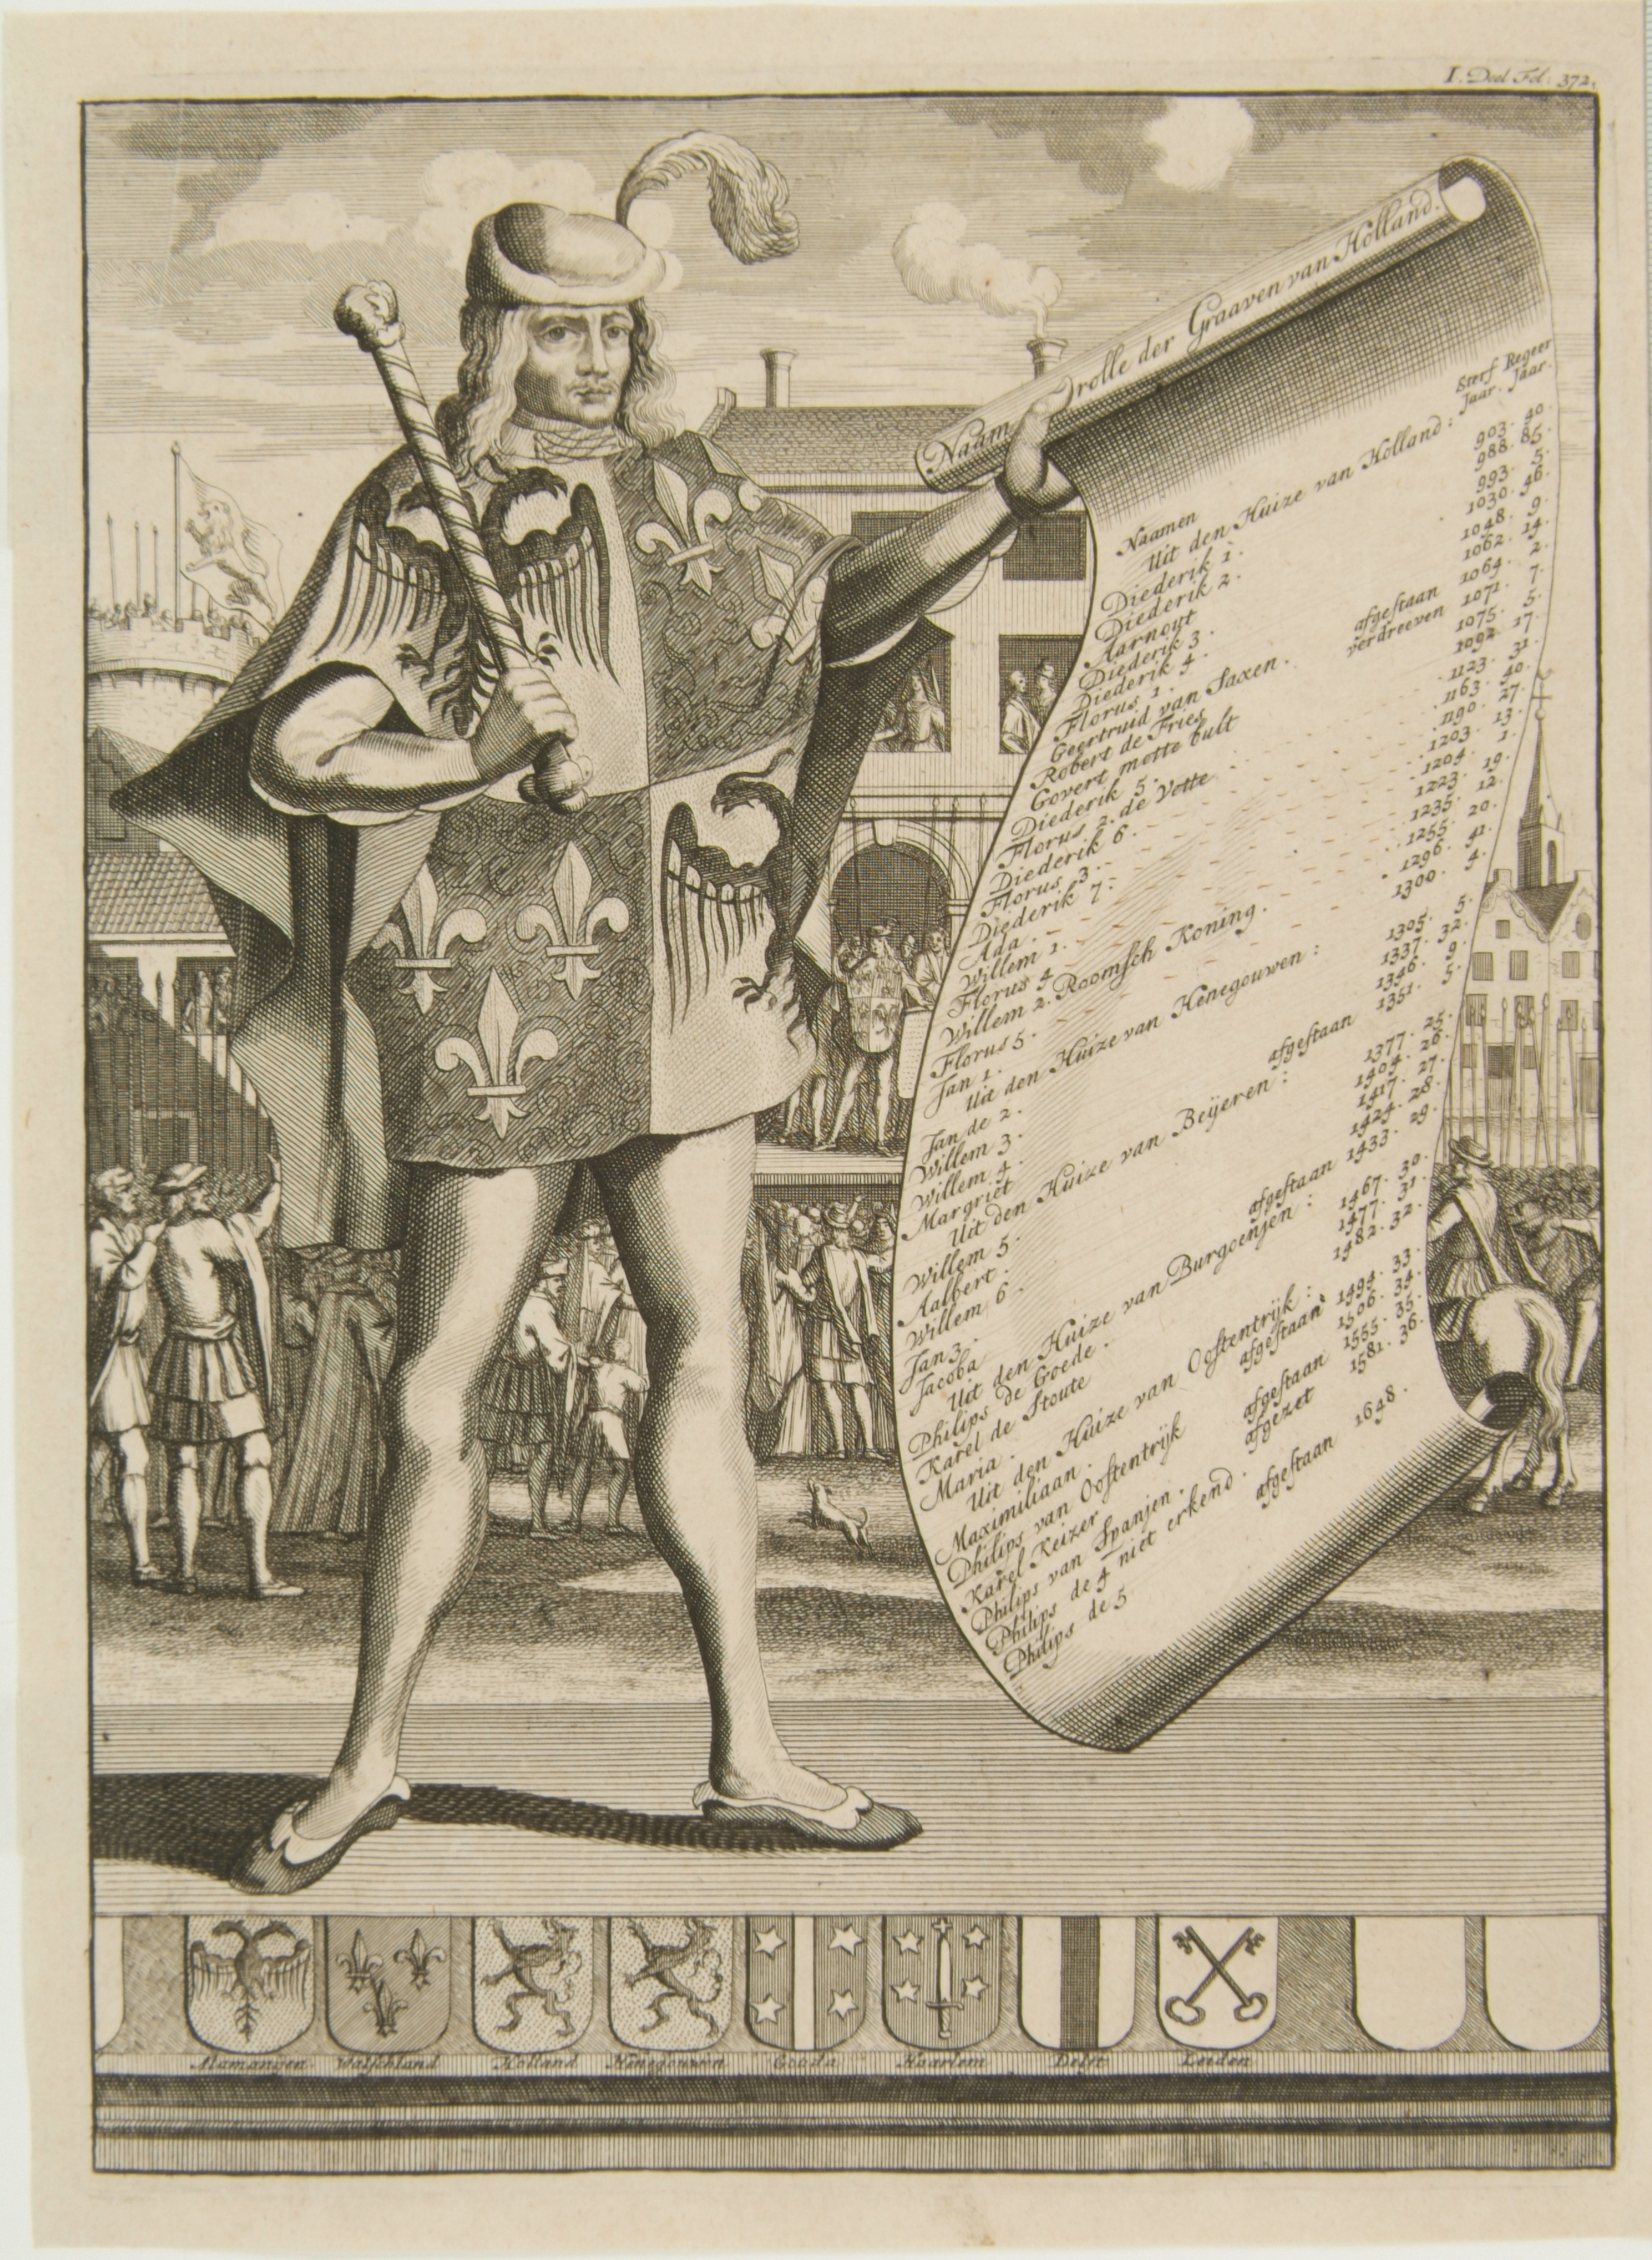 I. Deel Fol. 372.
Naam rolle der Graaven van Holland.
Sterf Regeer
Naamen Jaar. Jaar.
Uit den Huize van Holland:
Diederik 1. 903. 40.
Diederik 2. 988. 85.
Aarnout 993. 5.
Diederik 3. 1030. 46.
Diederik 4. 1048. 9.
Florus 1. 1062. 14.
Geertruid van Saxen. afgestaan 1064. 2.
Robert de Fries verdreeven 1071. 7.
Govert mette bult 1075. 5.
Diederik 5. 1092. 17.
Florus 2. de Vette 1123. 31.
Diederik 6. 1163. 40.
Florus 3. 1190. 27.
Diederik 7. 1203. 13.
Ada. 1204. 1.
Willem 1. 1223. 19.
Florus 4 1235. 12.
Willem 2. Roomsch Koning. 1255. 20.
Florus 5. 1296. 41.
Jan 1. 1300. 4.
Uit den Huize van Henegouwen:
Jan de 2. 1305. 5.
Willem 3. 1337. 32.
Willem 4. 1346. 9.
Margriet afgestaan 1351. 5.
Uit den Huize van Beijeren:
Willem 5. 1377. 25.
Aalbert. 1404. 26.
Willem 6. 1417. 27.
Jan 3. 1424. 28.
Jacoba afgestaan 1433. 29.
Uit den Huize van Burgoenjen:
Philips de Goede. 1467. 30.
Karel de Stoute 1477. 31.
Maria. 1482. 32.
Uit den Huize van Oostentrijk:
Maximiliaan. afgestaan 1494. 33.
Philips van Oostentrijk 1506. 34.
Karel Keizer afgestaan 1555. 35.
Philips van Spanjen. afgezet 1581. 36.
Philips de 4 niet erkend.
Philips de 5 afgestaan 1648.
Alamangen Walschland Holland Henegouwen Gouda Haarlem Delft Leiden